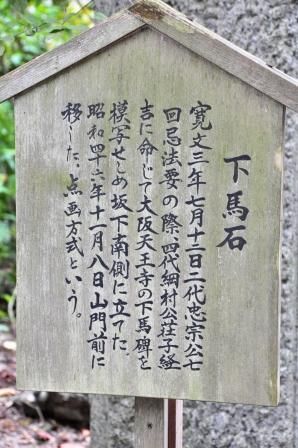 下馬石
寛文三年七月十二日二代忠宗公七
回忌法要の際、四代綱村公荘子経
吉に命じて大阪天王寺の下馬碑を
模写せしめ坂下南側に立てた。
昭和四十六年十一月八日山門前に
移した。点画方式という。